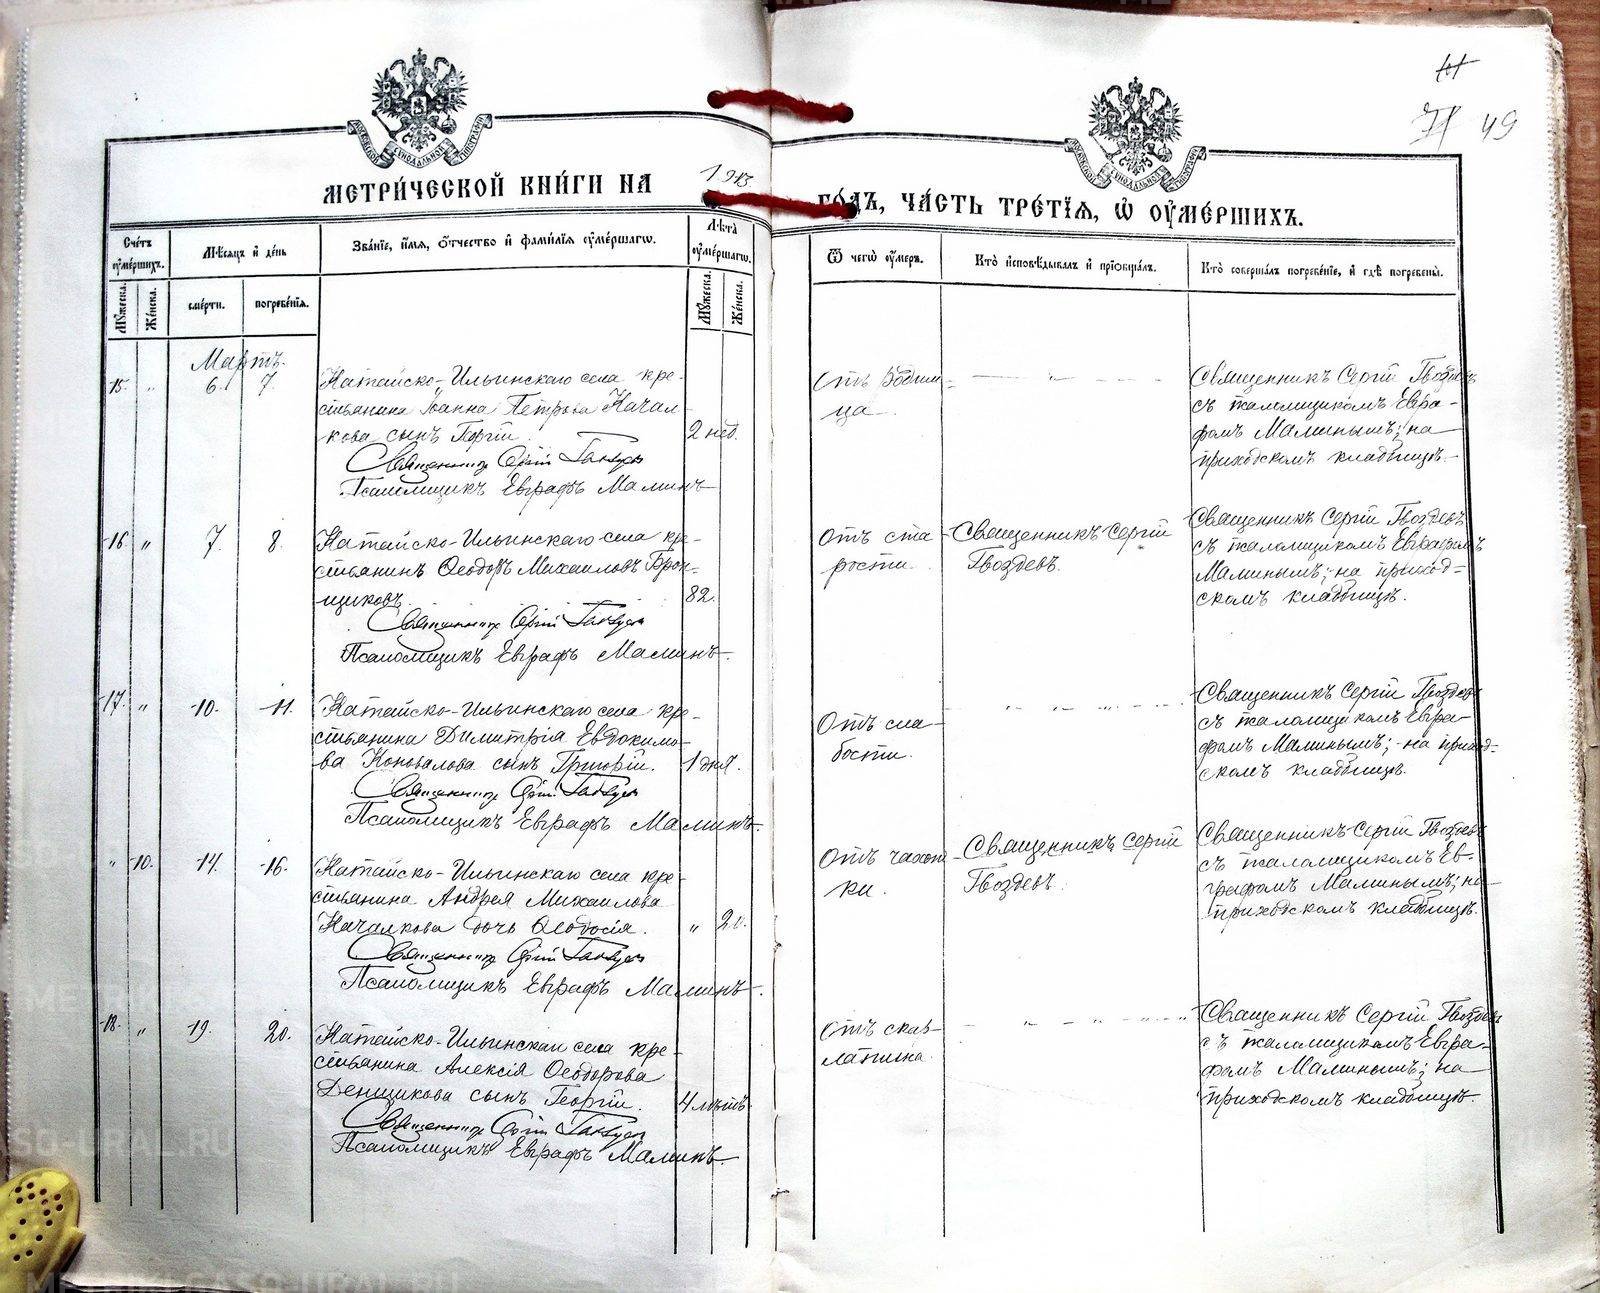 41
71 49
МОСКОВСКОЙ СѴНОДАЛЬНОЙ ТИПОГРАФІИ
МОСКОВСКОЙ СѴНОДАЛЬНОЙ ТИПОГРАФІИ
МЕТРИ́ЧЕСКОЙ КНИ́ГИ НА 1913 ГО́ДЪ, ЧА́СТЬ ТРЕ́ТІѦ, Ѡ҆ ОУ҆МЕ́РШИХЪ.
Сче́тъ оу҆ме́ршихъ.
Мѣ́сяцъ и҆ де́нь
Зва́нїе, и҆́мя, ѻ҆́тчество и҆ фами́лїя оу҆ме́ршагѡ.
Лѣта̀ оу҆ме́ршагѡ.
Ѿ чегѡ̀ оу҆́меръ.
Кто̀ и҆сповѣ́дывалъ и҆ прїѡбща́лъ.
Кто̀ соверша́лъ погребе́нїе, и҆ гдѣ̀ погребены̀.
Мꙋ́жеска.
Же́нска.
сме́рти.
погребе́нїя.
Мꙋ́жеска.
Же́нска.
Мартъ.
15. " 6. 7.
Катайско-Ильинскаго села кре-
стьянина Іоанна Петрова Качал-
кова сынъ Георгій. 2 нед.
Священникъ Сергій Гвоздевъ
Псаломщикъ Евграфъ Малинъ
Отъ Родим-
ца.
Священникъ Сергій Гвоздевъ
съ псаломщикомъ Евгра-
фомъ Малинымъ; на
приходскомъ кладбищѣ.
16 " 7. 8.
Катайско-Ильинскаго села кре-
стьянинъ Ѳеодоръ Михаиловъ Брон-
щиковъ. 82.
Священникъ Сергій Гвоздевъ
Псаломщикъ Евграфъ Малинъ.
Отъ ста-
рости.
Священникъ Сергій
Гвоздевъ.
Священникъ Сергій Гвоздевъ
съ псаломщикомъ Евграфомъ
Малинымъ; на приход-
скомъ кладбищѣ.
17. " 10. 11.
Катайско-Ильинскаго села кре-
стьянина Димитрія Евдокимо-
ва Коновалова сынъ Григорій. 1 дня.
Священникъ Сергій Гвоздевъ
Псаломщикъ Евграфъ Малинъ.
Отъ сла-
бости.
Священникъ Сергій Гвоздевъ
съ псаломщикомъ Евгра-
фомъ Малинымъ; на приход-
скомъ кладбищѣ.
" 10. 14. 16.
Катайско-Ильинскаго села кре-
стьянина Андрея Михаилова
Качалкова дочь Ѳеодосія. " 20.
Священникъ Сергій Гвоздевъ
Псаломщикъ Евграфъ Малинъ.
Отъ чахот-
ки.
Священникъ Сергій
Гвоздевъ.
Священникъ Сергій Гвоздевъ
съ псаломщикомъ Ев-
графомъ Малинымъ; на
приходскомъ кладбищѣ.
18. " 19. 20.
Катайско-Ильинскаго села кре-
стьянина Алексія Ѳеодорова
Денщикова сынъ Георгій. 4 лѣтъ.
Священникъ Сергій Гвоздевъ
Псаломщикъ Евграфъ Малинъ.
Отъ скар-
латина.
Священникъ Сергій Гвоздевъ
съ псаломщикомъ Евгра-
фомъ Малинымъ; на
приходскомъ кладбищѣ.
METRIKI.GASO-URAL.RU